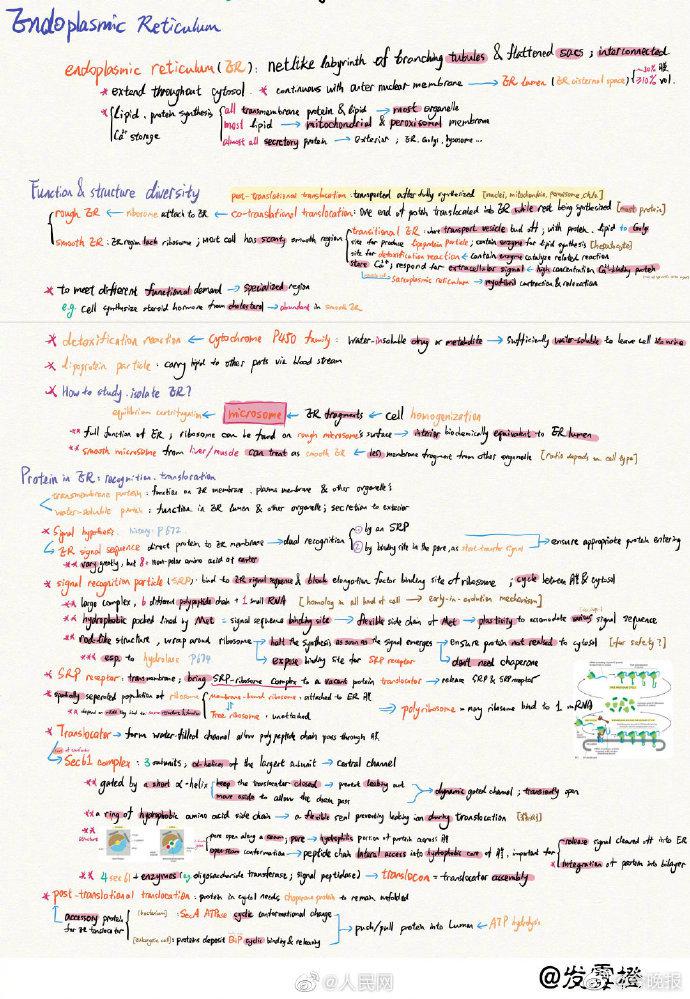 Endoplasmic Reticulum
endoplasmic reticulum (ER): netlike labyrinth of branching tubules & flattened sacs; interconnected
* extend throughout cytosol. * continuous with outer nuclear membrane → ER lumen (ER cisternal space) >10% vol.
* lipid, protein synthesis all transmembrane protein & lipid → most organelle
Ca²⁺ storage most lipid → mitochondrial & peroxisomal membrane
almost all secretory protein → exterior; ER, Golgi, lysosome...
Function & structure diversity post-translational translocation: transported after fully synthesized
rough ER ← ribosome attach to ER ← co-translational translocation: one end of protein translocated into ER while rest being synthesized [most protein]
smooth ER: ER region lack ribosome; most cell has scanty smooth region transitional ER: where transport vesicle bud off; with protein, lipid to Golgi
site for produce lipoprotein particle; contain enzyme for lipid synthesis [hepatocyte]
site for detoxification reaction ← contain enzyme catalyze related reaction
store Ca²⁺; respond for extracellular signal ← high concentration Ca²⁺-binding protein
sarcoplasmic reticulum → myofibril contraction & relaxation
* to meet different functional demand → specialized region
e.g. cell synthesize steroid hormone from cholesterol → abundant in smooth ER
* detoxification reaction ← cytochrome P450 family: water-insoluble drug or metabolite → sufficiently water-soluble to leave cell via urine
* lipoprotein particle: carry lipid to other parts via blood stream
* How to study, isolate ER?
equilibrium centrifugation ← microsome ← ER fragments ← cell homogenization
** full function of ER; ribosome can be found on rough microsome's surface → interior biochemically equivalent to ER lumen
** smooth microsome from liver/muscle can treat as smooth ER ← less membrane fragment from other organelle [ratio depends on cell type]
Protein in ER: recognition, translocation
transmembrane protein: function on ER membrane, plasma membrane & other organelle's
water-soluble protein: function in ER lumen & other organelle; secretion to exterior
* Signal hypothesis. history: P672
ER signal sequence direct protein to ER membrane → dual recognition ① by an SRP
② by binding site in the pore, as start-transfer signal → ensure appropriate protein entering
** vary greatly, but 8+ non-polar amino acid at center
* signal recognition particle (SRP): bind to ER signal sequence & block elongation factor binding site of ribosome; cycle between & cytosol
** large complex, 6 different polypeptide chain + 1 small RNA [homolog in all kind of cell → early-in-evolution mechanism]
** hydrophobic pocket lined by Met = signal sequence binding site → flexible side chain of Met → plasticity to accomodate various signal sequence
** rod-like structure, wrap around ribosome halt the synthesis as soon as the signal emerges → ensure protein not realed to cytosol [for safety?]
*** esp. to hydrolase P674 expose binding site for SRP receptor don't need chaperone
* SRP receptor: transmembrane; bring SRP-ribosome complex to a vacant protein translocator → release SRP & SRP receptor
* spatially seperated population of ribosome membrane-bound ribosome: attached to ER
Free ribosome: unattached polyribosome = many ribosome bind to 1 mRNA
* Translocator → form water-filled channel allow polypeptide chain pass through
Sec61 complex: 3 subunits; α-helices of the largest subunit → central channel
** gated by a short α-helix keep the translocator closed → prevent leaking out
move aside to allow the chain pass → dynamic gated channel; transiently open
** a ring of hydrophobic amino acid side chain → a flexible seal preventing leaking ion during translocation
** structure pore open along a seam; pore → hydrophilic portion of protein across
open seam conformation → peptide chain lateral access into hydrophobic core of, important for release signal cleaved off into ER
integration of protein into bilayer
** 4 sec61 + enzymes (eg. oligosaccharide transferase; signal peptidase) → translocon = translocator assembly
* post-translational translocation: protein in cytosol needs chaperone protein to remain unfolded
accessory protein for ER translocator [bacterium]: SecA ATPase cyclic conformational change
[eukaryotic cell]: proteins deposit BiP cyclic binding & releasing → push/pull protein into Lumen ← ATP hydrolysis
@人民网
@发霉橙